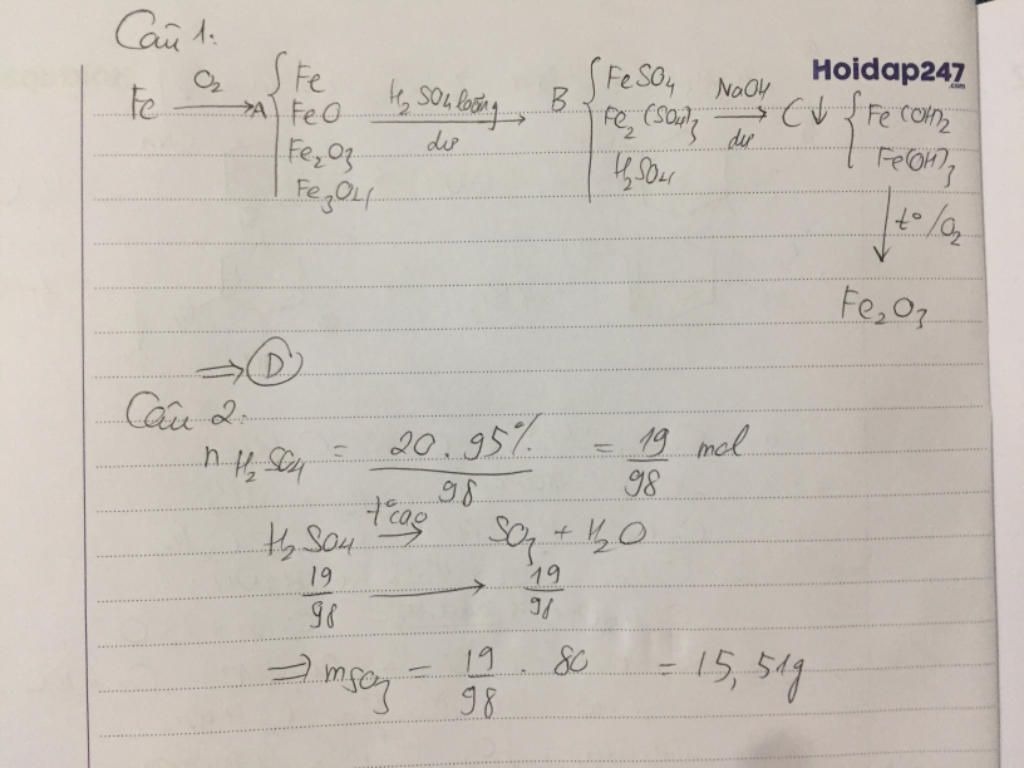 Câu 1:
Hoidap247
.com
Fe —O₂→ A { Fe FeO Fe₂O₃ Fe₃O₄ —H₂SO₄ loãng dư→ B { FeSO₄ Fe₂(SO₄)₃ H₂SO₄ —NaOH dư→ C↓ { Fe(OH)₂ Fe(OH)₃
↓ t° /O₂
Fe₂O₃
⇒ D
Câu 2:
n H₂SO₄ = 20.95% / 98 = 19/98 mol
H₂SO₄ —t° cao→ SO₃ + H₂O
19/98 → 19/98
⇒ mSO₃ = 19/98 . 80 = 15,51g